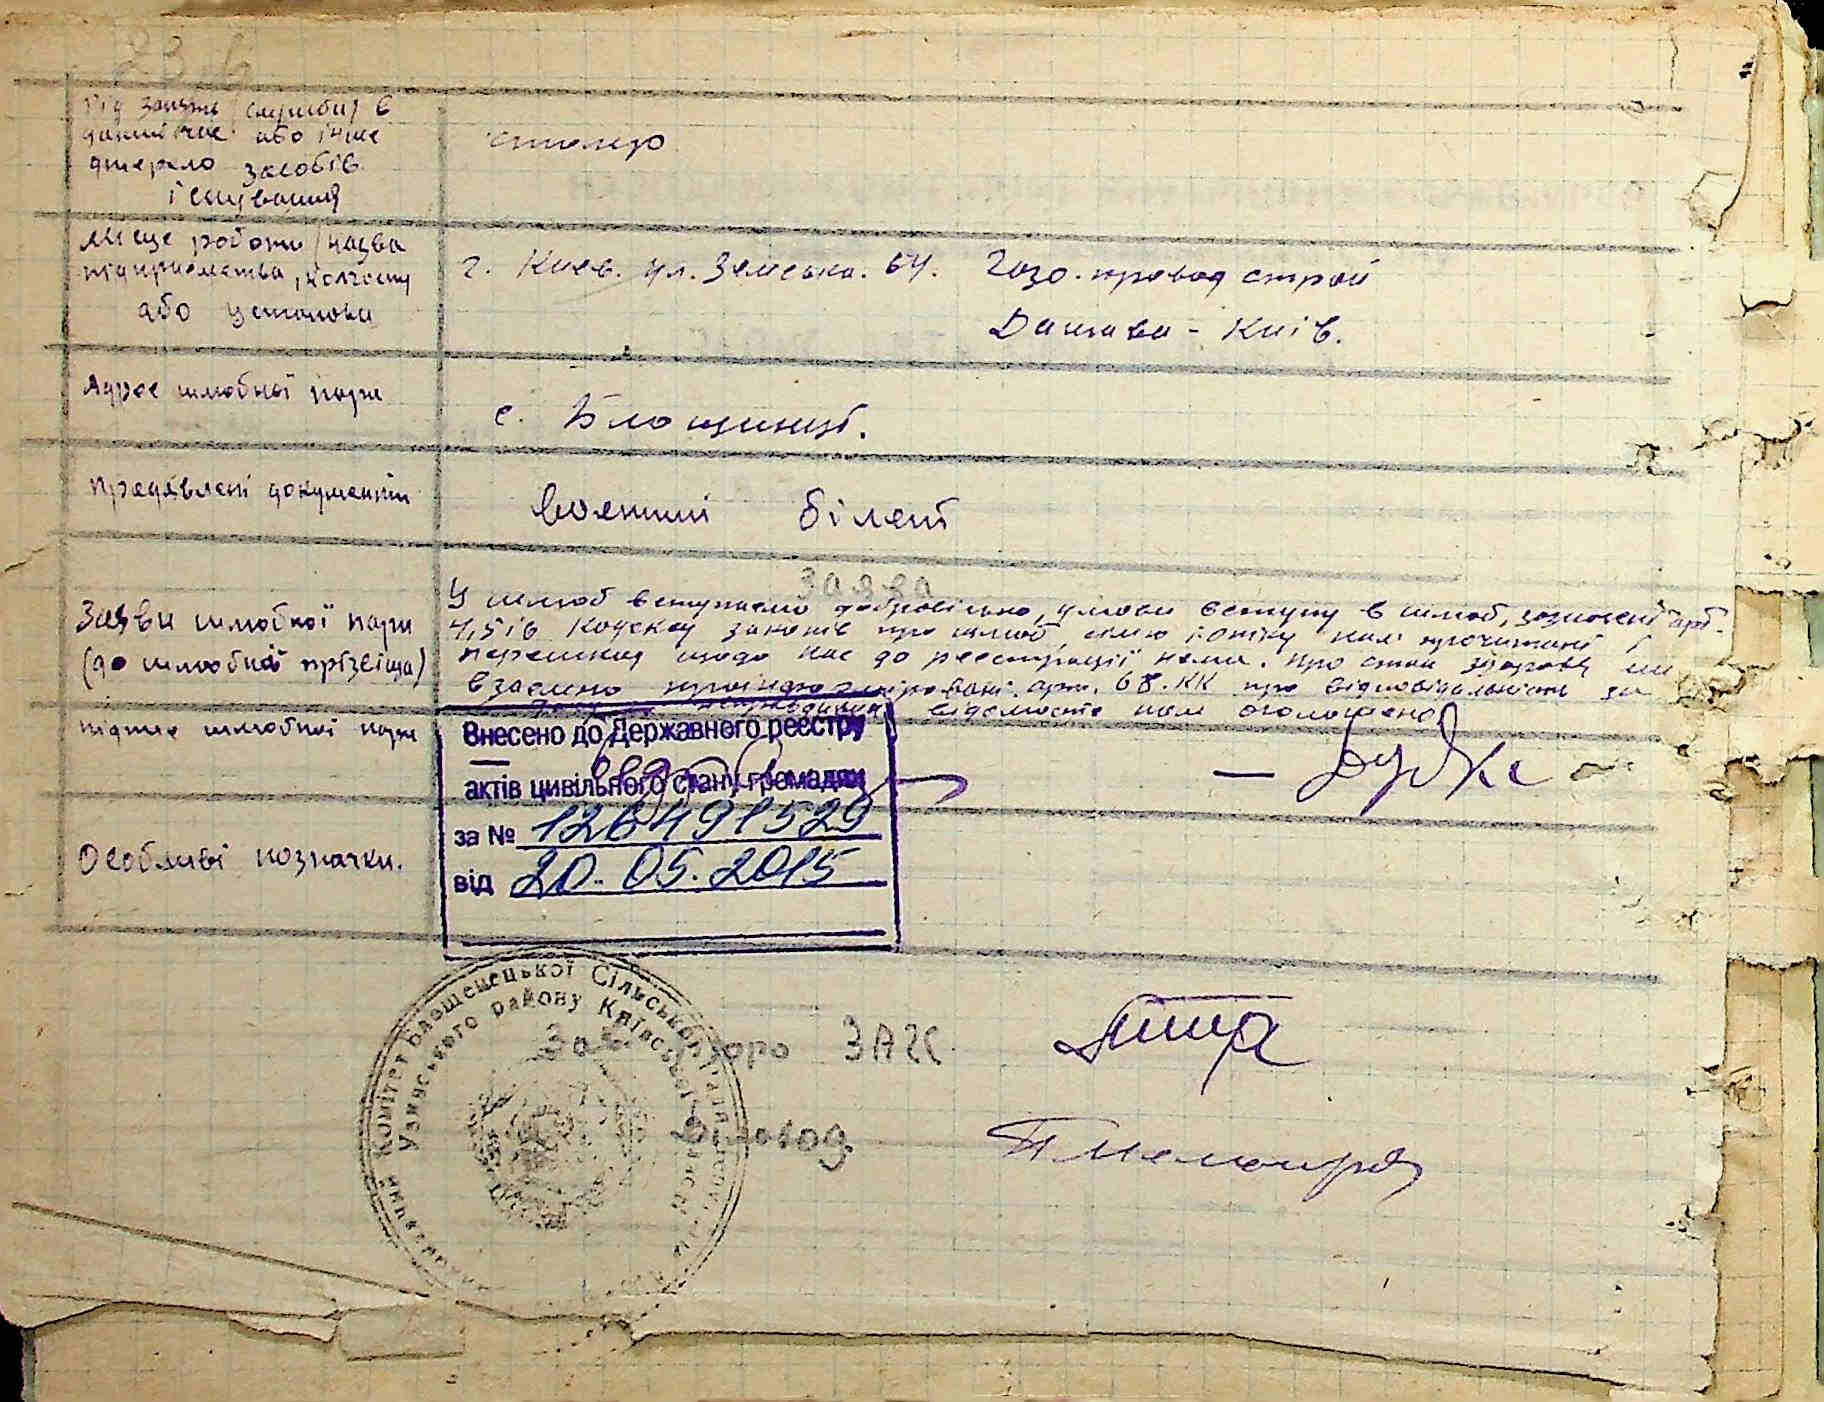 Рід занять (служби) в
даний час або інше
джерело засобів
існування
Місце роботи (назва
підприємства, колгоспу
або установи
г. Киев. ул. Земська. 64. Газо. провод строй
Дашава - Київ.
Адрес шлюбної пари
с. Блощинці.
Предявлені документи
Воєнний білет
Заява
Заяви шлюбної пари
(до шлюбної прізвіща)
У шлюб вступаємо добровільно, умови вступу в шлюб, зазначені арт.
4,5 і 6 Кодексу законів про шлюб, сімю і опіку нам прочитані і
перешкод щодо нас до реєстрації нема. Про стан здоровя ми
взаємно проінформіровані. арт. 68. КК про відповідальність за
відомости нам оголошено
підпис шлюбної пари
Внесено до Державного реєстру
актів цивільного стану громадян
за № 126491529
від 20. 05. 2015
Особливі позначки.
Зав. бюро ЗАГС
Діловод
Комітет Блощенецької Сільської Ради
Узинського району Київської